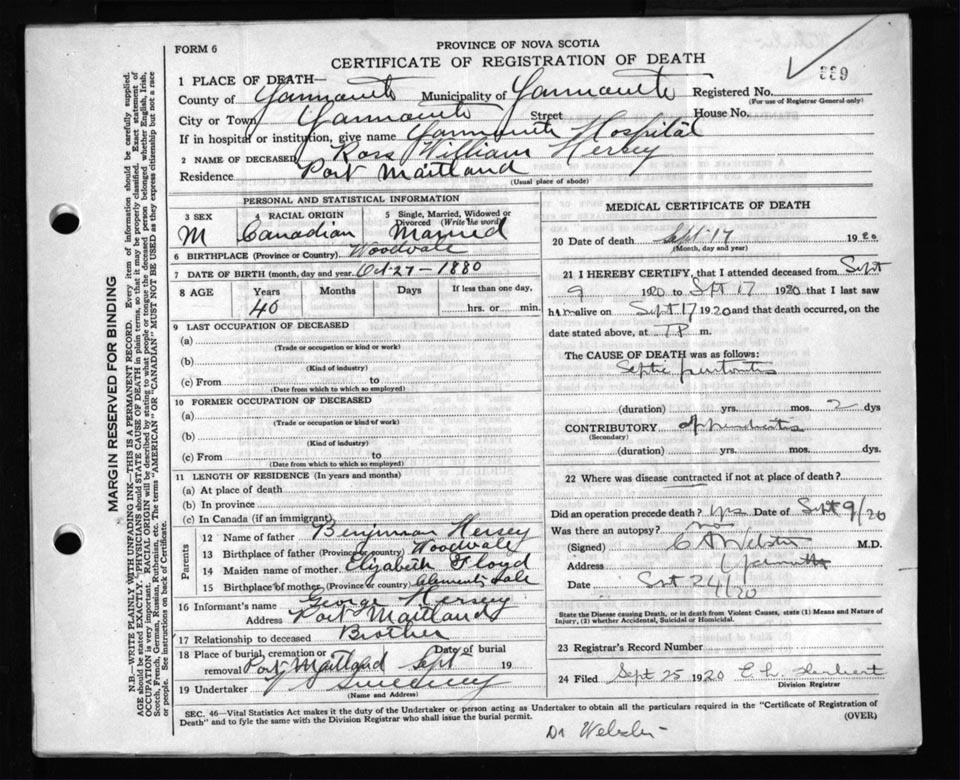 FORM 6
PROVINCE OF NOVA SCOTIA
CERTIFICATE OF REGISTRATION OF DEATH
889
1 PLACE OF DEATH—
County of Yarmouth Municipality of Yarmouth Registered No.
(For use of Registrar General only)
City or Town Yarmouth Street House No.
If in hospital or institution, give name Yarmouth Hospital
2 NAME OF DECEASED Ross William Hersey
Residence Port Maitland
(Usual place of abode)
PERSONAL AND STATISTICAL INFORMATION
3 SEX 4 RACIAL ORIGIN 5 Single, Married, Widowed or Divorced (Write the word)
M Canadian Married
6 BIRTHPLACE (Province or Country) Woodvale
7 DATE OF BIRTH (month, day and year) Oct-27-1880
8 AGE Years Months Days If less than one day,
40 hrs. or min.
9 LAST OCCUPATION OF DECEASED
(a)
(Trade or occupation or kind or work)
(b)
(Kind of industry)
(c) From to
(Date from which to which so employed)
10 FORMER OCCUPATION OF DECEASED
(a)
(Trade or occupation or kind of work)
(b)
(Kind of industry)
(c) From to
(Date from which to which so employed)
11 LENGTH OF RESIDENCE (In years and months)
(a) At place of death
(b) In province
(c) In Canada (if an immigrant)
Parents
12 Name of father Benjiman Hersey
13 Birthplace of father (Province or country) Woodvale
14 Maiden name of mother Elizabeth Floyd
15 Birthplace of mother (Province or country) Clements Vale
16 Informant's name George Hersey
Address Port Maitland
17 Relationship to deceased Brother
18 Place of burial, cremation or removal Port Maitland Date of burial Sept 19
19 Undertaker Sweeney
(Name and Address)
MEDICAL CERTIFICATE OF DEATH
20 Date of death Sept 17 1920
(Month, day and year)
21 I HEREBY CERTIFY, that I attended deceased from Sept
9 1920 to Spt 17 1920 that I last saw
him alive on Sept 17 1920 and that death occurred, on the
date stated above, at 7 P m.
The CAUSE OF DEATH was as follows:
Septic peritonitis
(duration) yrs. mos. 2 dys
CONTRIBUTORY appendicitis
(Secondary)
(duration) yrs. mos. dys.
22 Where was disease contracted if not at place of death?
Did an operation precede death? yes Date of Sept 9/20
Was there an autopsy? no
(Signed) C A Webster M.D.
Address Yarmouth
Date Sept 24/20
State the Disease causing Death, or in death from Violent Causes, state (1) Means and Nature of
Injury, (2) whether Accidental, Suicidal or Homicidal.
23 Registrar's Record Number
24 Filed Sept 25 1920 E. h.
Division Registrar
SEC. 46—Vital Statistics Act makes it the duty of the Undertaker or person acting as Undertaker to obtain all the particulars required in the "Certificate of Registration of
Death" and to fyle the same with the Division Registrar who shall issue the burial permit.
(OVER)
Dr Webster
MARGIN RESERVED FOR BINDING
N.B.—WRITE PLAINLY WITH UNFADING INK—THIS IS A PERMANENT RECORD. Every item of information should be carefully supplied.
AGE should be stated EXACTLY. PHYSICIANS should STATE CAUSE OF DEATH in plain terms, so that it may be properly classified. Exact statement of
OCCUPATION is very important. RACIAL ORIGIN will be described by stating to what people or tongue the deceased person belonged whether English, Irish,
Scotch, French, German, Russian, Ruthenian, etc. The terms "AMERICAN" OR "CANADIAN" MUST NOT BE USED as they express citizenship but not a race
or people. See instructions on back of Certificate.